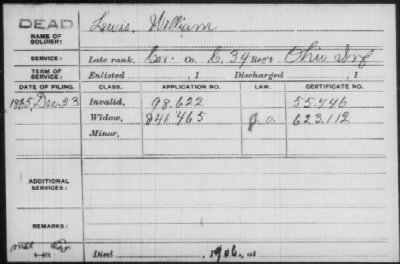 DEAD
NAME OF SOLDIER: Lewis, William
SERVICE: Late rank, Cor. Co. C, 39 Reg't Ohio Inf
TERM OF SERVICE: Enlisted , 1 Discharged , 1
DATE OF FILING. CLASS. APPLICATION NO. LAW. CERTIFICATE NO.
1865, Dec. 23 Invalid, 98.622 55.446
Widow, 841.465 623.112
Minor,
ADDITIONAL SERVICES:
REMARKS:
Died , 1906, at